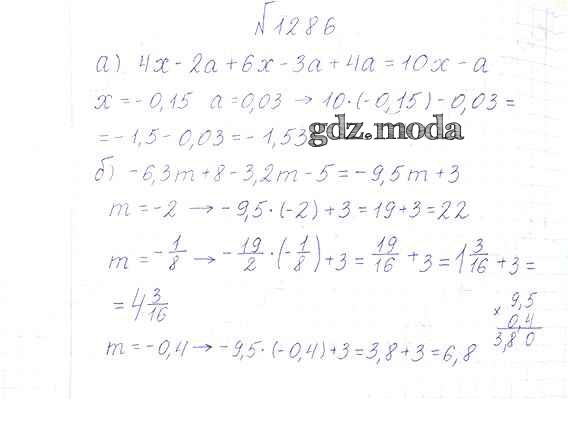 №1286
а) 4x - 2a + 6x - 3a + 4a = 10x - a
x = -0,15 a = 0,03 → 10·(-0,15) - 0,03 =
= -1,5 - 0,03 = -1,53
gdz.moda
б) -6,3m + 8 - 3,2m - 5 = -9,5m + 3
m = -2 → -9,5·(-2) + 3 = 19 + 3 = 22
m = -1/8 → -19/2·(-1/8) + 3 = 19/16 + 3 = 1 3/16 + 3 =
= 4 3/16
× 9,5
0,4
3,80
m = -0,4 → -9,5·(-0,4) + 3 = 3,8 + 3 = 6,8